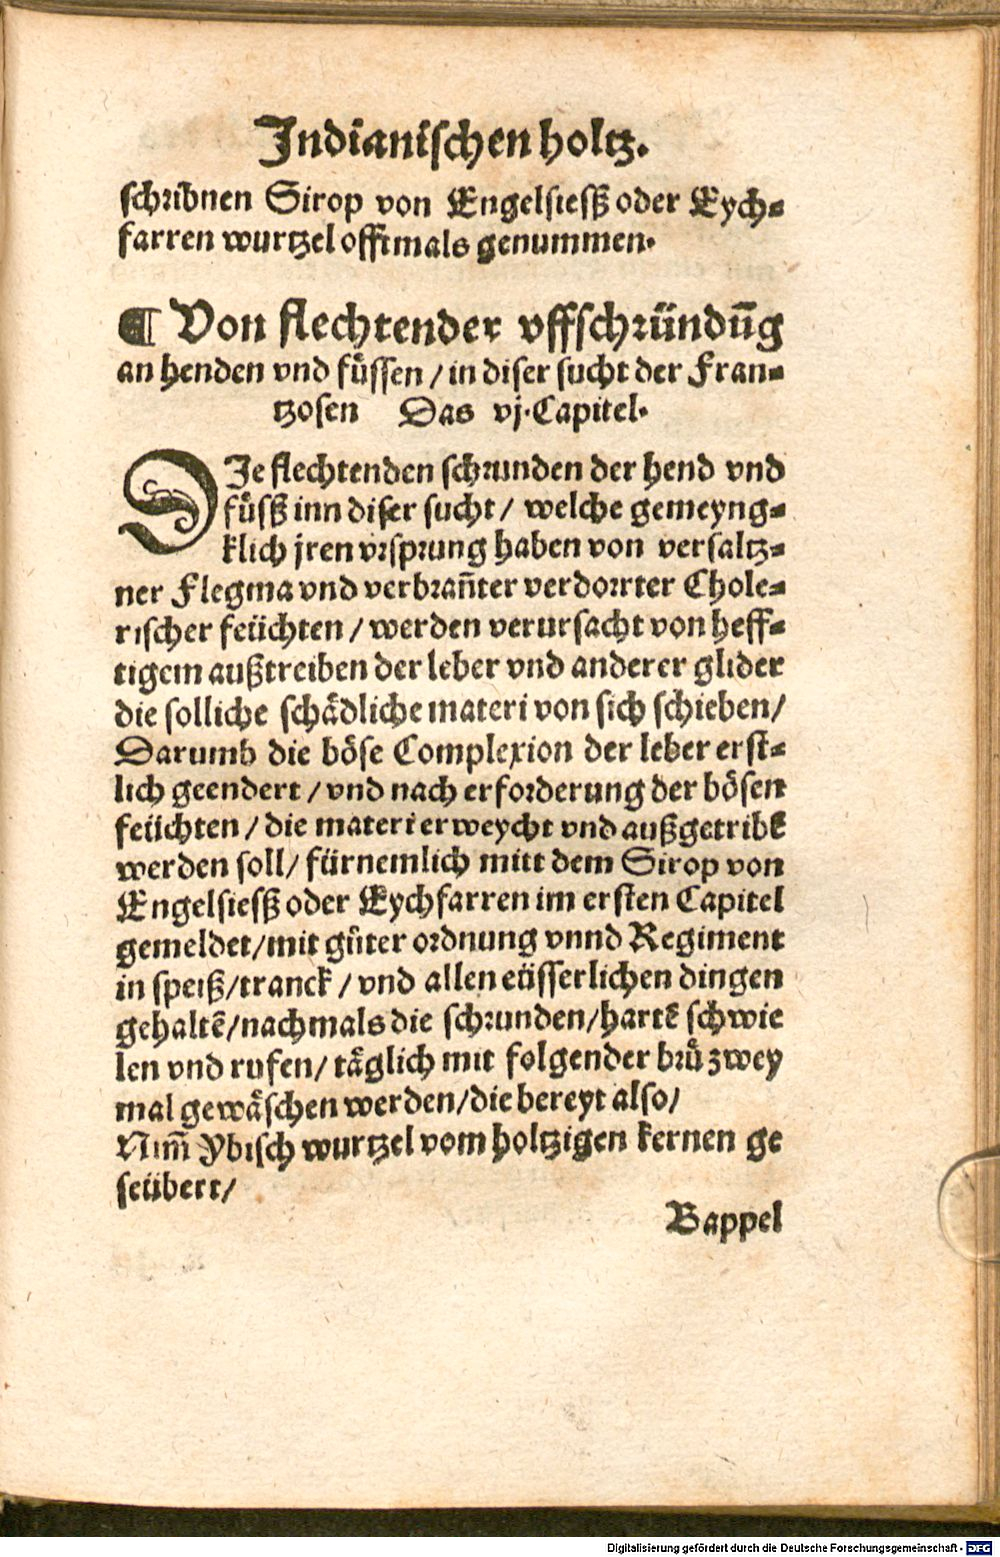 Indianischen holtz.
schribnen Sirop von Engelsiesß oder Eych⸗
farren wurtzel offtmals genummen.
¶ Von flechtender vffschründūg
an henden vnd fuͤssen / in diser sucht der Fran⸗
tzosen Das vj. Capitel.
DIe flechtenden schrunden der hend vnd
fuͤsß inn diser sucht / welche gemeyng⸗
klich jren vrsprung haben von versaltz⸗
ner Flegma vnd verbrañter verdorrter Chole⸗
rischer feüchten / werden verursacht von heff⸗
tigem außtreiben der leber vnd anderer glider
die solliche schaͤdliche materi von sich schieben /
Darumb die boͤse Complexion der leber erst⸗
lich geendert / vnd nach erforderung der boͤsen
feüchten / die materi erweycht vnd außgetribẽ
werden soll / fürnemlich mitt dem Sirop von
Engelsiesß oder Eychfarren im ersten Capitel
gemeldet / mit guͦter ordnung vnnd Regiment
in speiß / tranck / vnd allen eüsserlichen dingen
gehaltẽ / nachmals die schrunden / hartẽ schwie
len vnd rufen / taͤglich mit folgender bruͤ zwey
mal gewaͤschen werden / die bereyt also /
Nim̄ Ybisch wurtzel vom holtzigen kernen ge
seübert /
Bappel
Digitalisierung gefördert durch die Deutsche Forschungsgemeinschaft - DFG